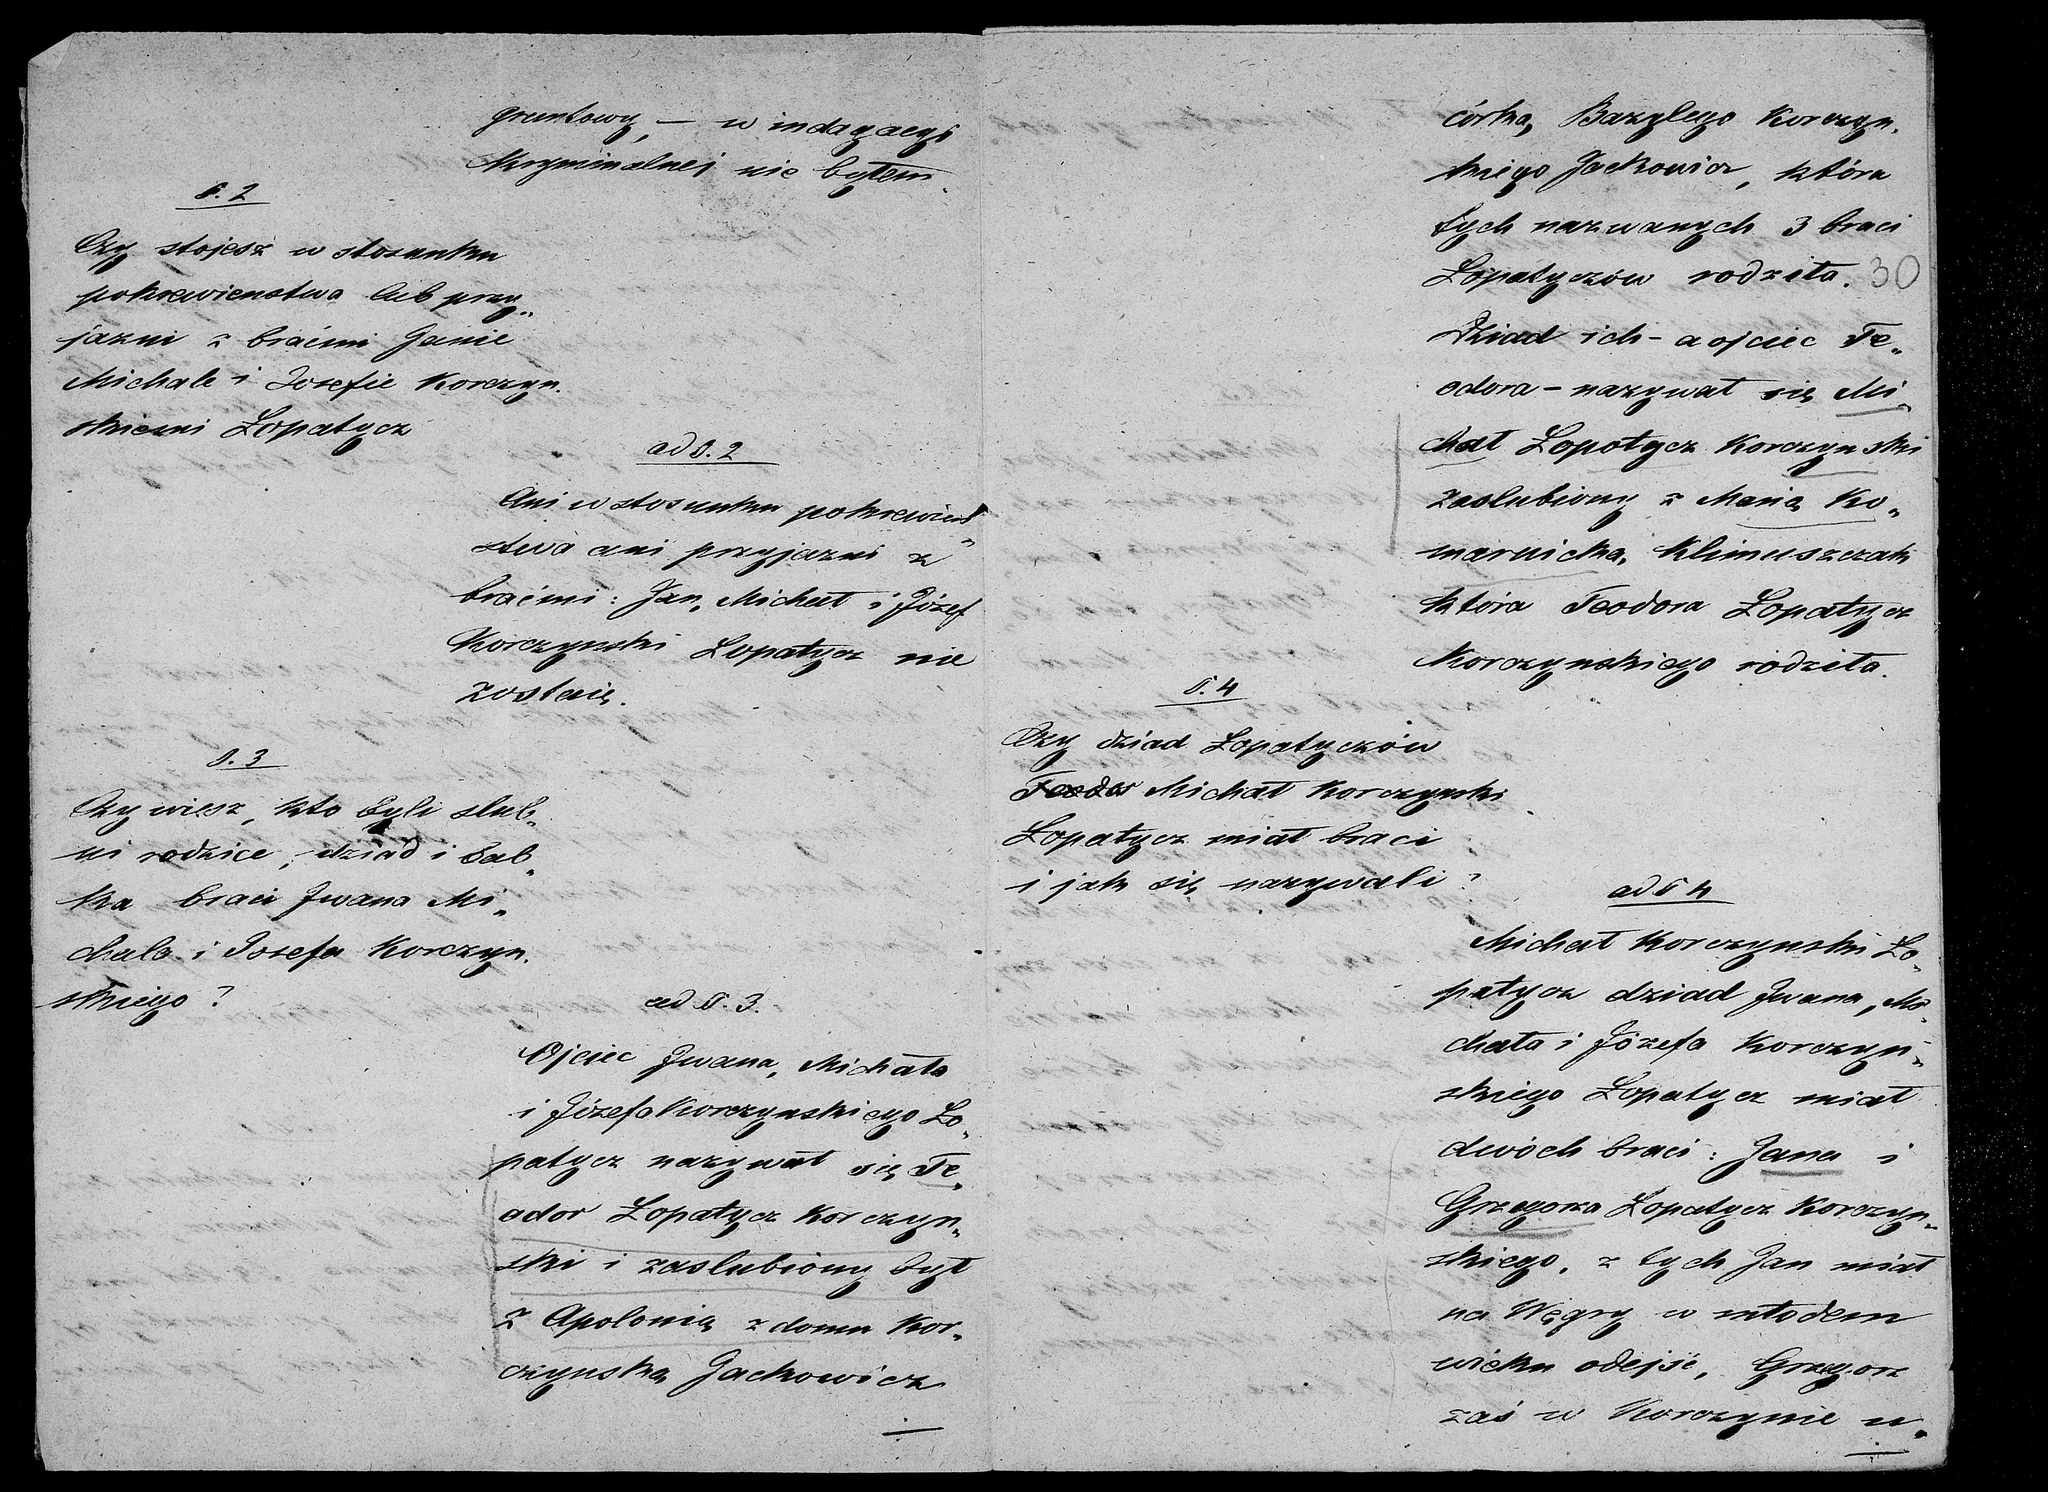 gruntowy, — w indagacyi
kryminalnej nie byłem.
§. 2
Czy stojesz w stosunku
pokrewienstwa lub przy„
jazni z braćmi Janie
Michale i Josefie Korczyn.
skiemi Łopatycz
ad §. 2
Ani w stosunku pokrewień„
stwa ani przyjazni z
braćmi: Jan, Michał i Józef
Korczynski Łopatycz nie
zostaię.
§. 3
Czy wiesz, kto byli slub„
ni rodzice, dziad i bab„
ka braci Iwana Mi„
chala i Josefa Korczyn.
skiego?
ad §. 3.
Ojciec Iwana, Michała
i Józefa Korczynskiego Ło„
patycz nazywał się Te„
odor Łopatycz Korczyn„
ski i zaslubiony był
z Apolonią z domu Kor„
czynską Jackowicz
córką Bazylego Korczyn.
skiego Jackowicz, która
tych nazwanych 3 braci
Łopatyczów rodziła.
30
Dziad ich - a ojciec Te„
odora - nazywał się Mi„
chał Łopatycz Korczynski
zaslubiony z Marią Ko„
marnicką Klimuszczak
która Teodora Łopatycz
Korczynskiego rodziła.
§. 4
Czy dziad Łopatyczów
Teodor Michał Korczynski
Łopatycz miał braci
i jak się nazywali?
ad § 4
Michał Korczynski Ło„
patycz dziad Iwana, Mi„
chała i Józefa Korczyń„
skiego Łopatycz miał
dwóch braci: Jana i
Grzegorza Łopatycz Korczyn„
skiego, z tych Jan miał
na Węgry w młodem
wieku odejść, Grzegorz
zaś w Korczynie u„